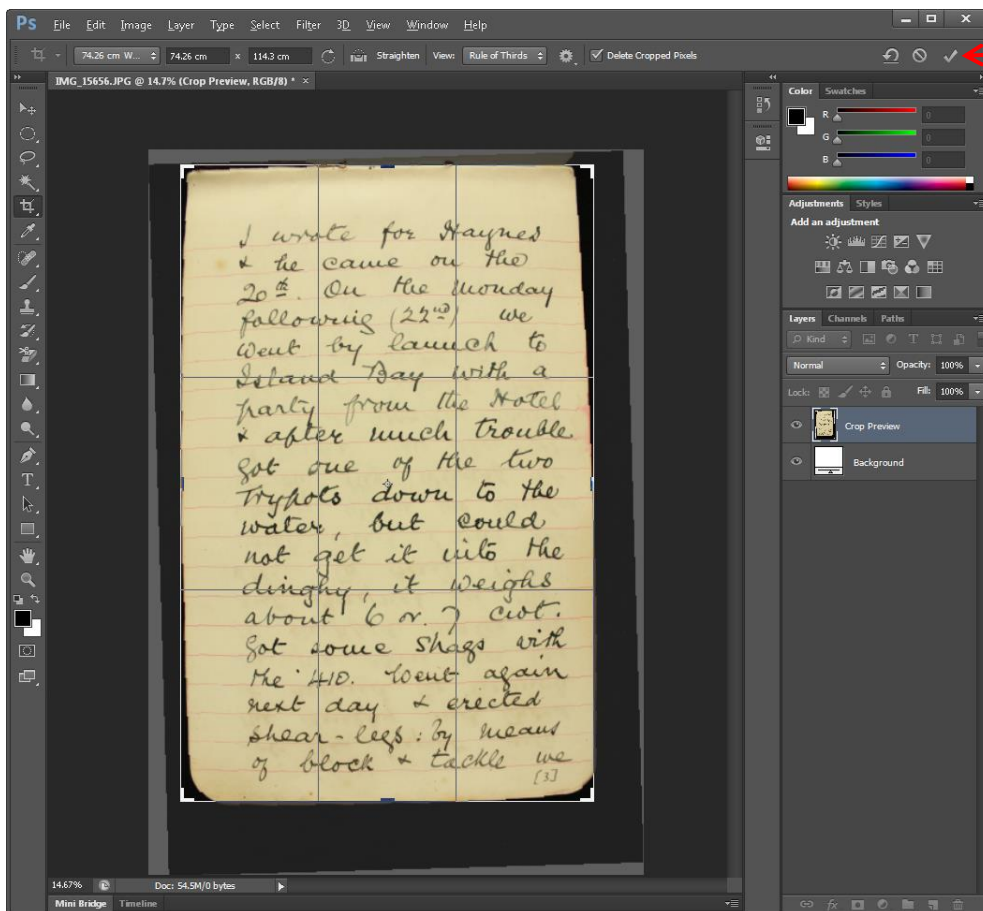 Ps File Edit Image Layer Type Select Filter 3D View Window Help
74.26 cm W... 74.26 cm x 114.3 cm Straighten View: Rule of Thirds Delete Cropped Pixels
IMG_15656.JPG @ 14.7% (Crop Preview, RGB/8) * ×
I wrote for Haynes
& he came on the
20th. On the Monday
following (22nd) we
went by launch to
Island Bay with a
party from the Hotel
& after much trouble
got one of the two
Trypots down to the
water, but could
not get it into the
dinghy, it weighs
about 6 or 7 cwt.
Got some Shags with
the 410. Went again
next day & erected
shear-legs: by means
of block & tackle we
[3]
14.67% Doc: 54.5M/0 bytes
Mini Bridge Timeline
Color Swatches
R 0
G 0
B 0
Adjustments Styles
Add an adjustment
Layers Channels Paths
Kind
Normal Opacity: 100%
Lock: Fill: 100%
Crop Preview
Background